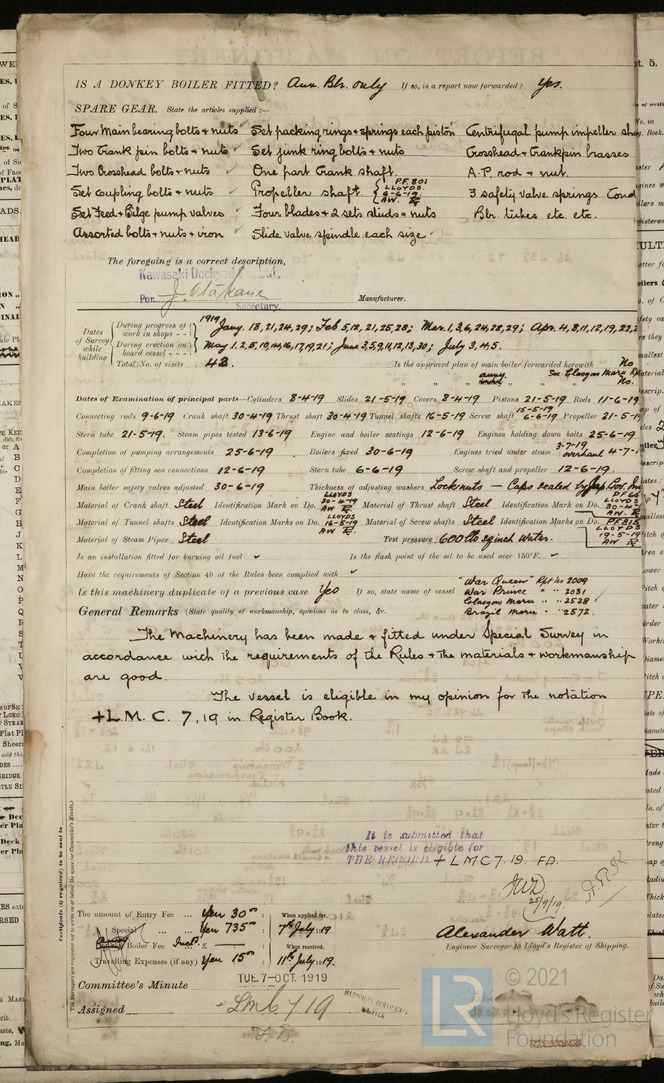 IS A DONKEY BOILER FITTED? Aux. Blr. only If so, is a report now forwarded? Yes.
SPARE GEAR. State the articles supplied:—
Four Main bearing bolts + nuts Set packing rings + springs each piston Centrifugal pump impeller
Two Crank pin bolts + nuts Set junk ring bolts + nuts Crosshead + Crankpin brasses
Two Crosshead bolts + nuts One part Crank shaft. A.P. rod + nut.
Set coupling bolts + nuts Propeller shaft. PF 801 LLOYDS 6-6-19 AW 3 safety valve springs. Cond
Set Feed + Bilge pump valves Four blades + 2 sets studs + nuts Blr. tubes etc. etc.
Assorted bolts + nuts + iron Slide valve spindle each size
The foregoing is a correct description,
Kawasaki Dockyard Ltd,
Per Secretary. Manufacturer.
Dates of Survey while building
During progress of work in shops - - 1919 Jany. 18, 21, 24, 29; Feb 5, 12, 21, 25, 28; Mar. 1, 3, 6, 24, 28, 29; Apr. 4, 8, 11, 12, 19, 22,
During erection on board vessel - - - May 1, 2, 5, 10, 14, 16, 17, 19, 21; June 3, 5, 9, 11, 12, 13, 30; July 3, 4, 5.
Total No. of visits 43. Is the approved plan of main boiler forwarded herewith No
See Glasgow Maru
" " auxy. " " " No.
Dates of Examination of principal parts—Cylinders 8-4-19 Slides 21-5-19 Covers 8-4-19 Pistons 21-5-19 Rods 11-6-19
Connecting rods 9-6-19 Crank shaft 30-4-19 Thrust shaft 30-4-19 Tunnel shafts 16-5-19 Screw shaft 15-5-19 6-6-19 Propeller 21-5-19
Stern tube 21-5-19. Steam pipes tested 13-6-19 Engine and boiler seatings 12-6-19 Engines holding down bolts 25-6-19
Completion of pumping arrangements 25-6-19 Boilers fixed 30-6-19 Engines tried under steam 3-7-19 overhaul 4-7-
Completion of fitting sea connections 12-6-19 Stern tube 6-6-19 Screw shaft and propeller 12-6-19.
Main boiler safety valves adjusted 30-6-19 Thickness of adjusting washers Locknuts — Caps sealed by Jap. Gov.
Material of Crank shaft Steel Identification Mark on Do. LLOYDS 30-4-19 AW Material of Thrust shaft Steel Identification Mark on Do. LLOYDS 30-4- AW.
Material of Tunnel shafts Steel Identification Marks on Do. LLOYDS 16-5-19 AW Material of Screw shafts Steel Identification Marks on Do. LLOYDS 19-5-19 AW
Material of Steam Pipes Steel Test pressure 600 lbs sq inch Water.
Is an installation fitted for burning oil fuel ✓ Is the flash point of the oil to be used over 150°F. ✓
Have the requirements of Section 49 of the Rules been complied with ✓
Is this machinery duplicate of a previous case Yes If so, state name of vessel "War Queen" Rpt No 2009
War Prince " " 2031
Glasgow Maru " " 2528
Brazil Maru " " 2572.
General Remarks (State quality of workmanship, opinions as to class, &c.
The Machinery has been made & fitted under Special Survey in
accordance with the requirements of the Rules + the materials + workmanship
are good.
The vessel is eligible in my opinion for the notation
+ L.M.C. 7, 19 in Register Book.
It is submitted that
this vessel is eligible for
THE RECORD. + LMC 7. 19. FD.
25/9/19.
Certificate (if required) to be sent to
The amount of Entry Fee ... Yen 30.00 : When applied for,
Special ... ... Yen 735.00 : 7th July 1919
Boiler Fee Incl. £ — : When received,
Travelling Expenses (if any) Yen 15.00 : 11th July 1919.
Alexander Watt.
Engineer Surveyor to Lloyd's Register of Shipping.
Committee's Minute TUE 7-OCT 1919
Assigned + LMC 7 19
F.D.
LR © 2021
Lloyd's Register
Foundation